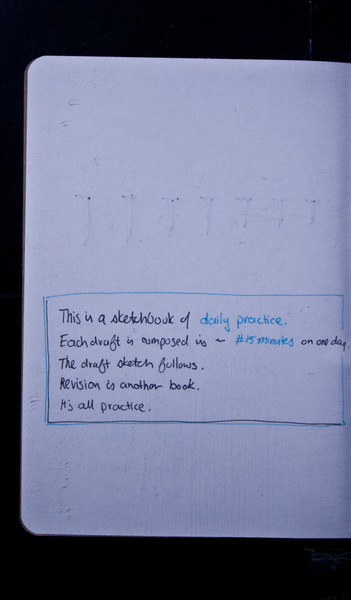 This is a sketchbook of daily practice.
Each draft is composed in ~ #15minutes on one day.
The draft sketch follows.
Revision is another book.
It's all practice.